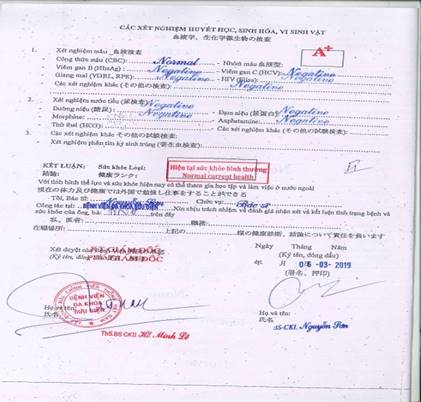 CÁC XÉT NGHIỆM HUYẾT HỌC, SINH HÓA, VI SINH VẬT
血液学、生化学微生物の検査
1. Xét nghiệm máu 血液検査
Công thức máu (CBC): Normal - Nhóm máu 血液型: A+
Viêm gan B (HbsAg): Negative - Viêm gan C (HCV): Negative
Giang mai (VDRL, RPR): Negative - HIV: Negative
Các xét nghiệm khác (その他の検査)
2. Xét nghiệm nước tiểu (尿検査) Negative
Đường niệu (糖尿): Negative - Đạm niệu (尿蛋白): Negative
Morphine: - Amphetamine: Negative
Thử thai (HCG): - Các xét nghiệm khác (その他の検査)
3. Các xét nghiệm khác (その他の試験検査)
Xét nghiệm phân tìm ký sinh trùng (寄生虫検査)
KẾT LUẬN: Sức khỏe Loại:
結論: 健康ランク:
Hiện tại sức khỏe bình thường
Normal current health
II
Với tình hình thể lực và sức khỏe hiện nay có thể tham gia học tập và làm việc ở nước ngoài
現在の体力及び健康では外国で勉強し仕事をすることができる
Tôi, Bác Sĩ: Nguyễn Sơn Chức vụ: Bác sĩ
Công tác tại: BỆNH VIỆN ĐA KHOA BƯU ĐIỆN Xin chịu trách nhiệm về đánh giá nhận xét và kết luận tình trạng bệnh và
sức khỏe của ông, bà: trên đây
私、医者: 職務:
在職場所: 上記の 様の健康診断、結論について責任を負います
Ngày Tháng Năm
Xét duyệt của
PHÓ GIÁM ĐỐC
(Ký tên, đóng dấu)
06-03-2019
(署名、押印)
BỆNH VIỆN
ĐA KHOA
BƯU ĐIỆN
Họ và tên:
氏名
ThS.BS CKII
Họ và tên:
氏名
BS-CKI. Nguyễn Sơn